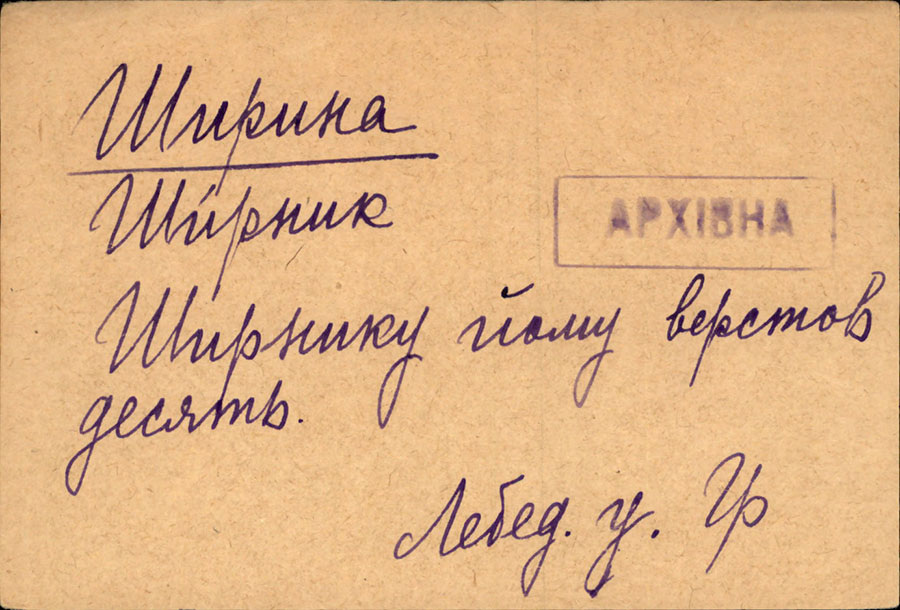 Ширина
Ши́рник
АРХІВНА
Ширнику йому верстов
десять.
Лебед. у. Гр